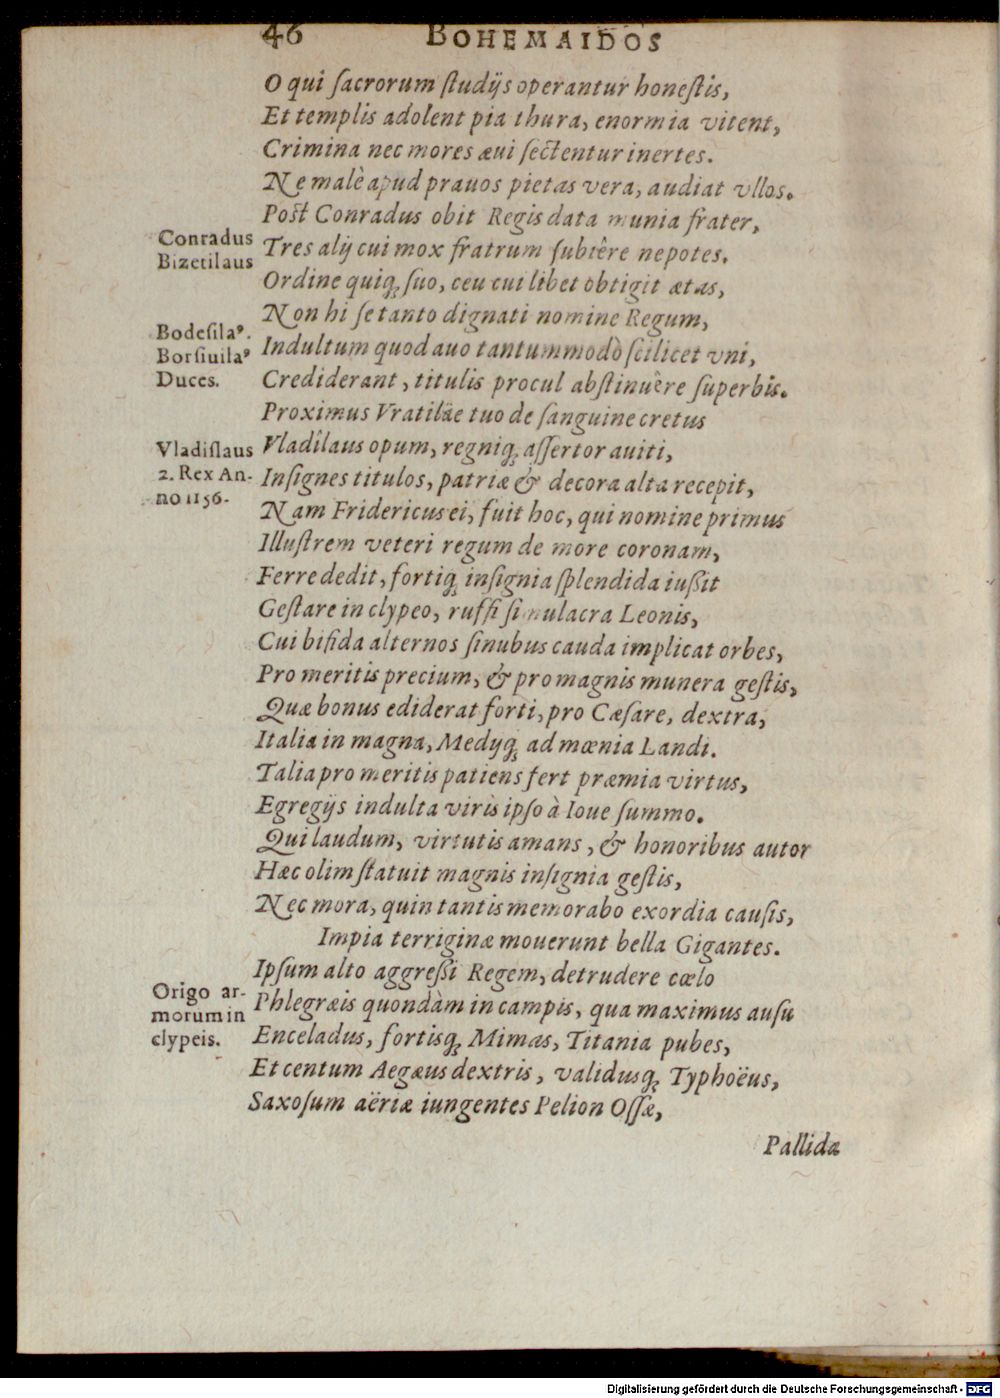 46 BOHEMAIDOS
O qui ſacrorum ſtudijs operantur honeſtis,
Et templis adolent pia thura, enormia vitent,
Crimina nec mores æui ſectentur inertes.
Ne malè apud prauos pietas vera, audiat vllos.
Poſt Conradus obit Regis data munia frater,
Conradus
Bizetilaus
Tres alij cui mox fratrum ſubiêre nepotes.
Ordine quiq; ſuo, ceu cuilibet obtigit ætas,
Non hi ſe tanto dignati nomine Regum,
Bodeſilaꝰ.
Borſiuilaꝰ
Duces.
Indultum quod auo tantummodò ſcilicet vni,
Crediderant, titulis procul abſtinuêre ſuperbis.
Proximus Vratiläe tuo de ſanguine cretus
Vladiſlaus
2. Rex An-
no 1156.
Vladîlaus opum, regniq; aſſertor auiti,
Inſignes titulos, patriæ & decora alta recepit,
Nam Fridericus ei, fuit hoc, qui nomine primus
Illuſtrem veteri regum de more coronam,
Ferre dedit, fortiq; inſignia ſplendida iußit
Geſtare in clypeo, ruffi ſimulacra Leonis,
Cui bifida alternos ſinubus cauda implicat orbes,
Pro meritis precium, & pro magnis munera geſtis,
Quæ bonus ediderat forti, pro Cæſare, dextra,
Italia in magna, Medijq; ad mœnia Landi.
Talia pro meritis patiens fert præmia virtus,
Egregijs indulta viris ipſo à Ioue ſummo.
Qui laudum, virtutis amans, & honoribus autor
Hæc olim ſtatuit magnis inſignia geſtis,
Nec mora, quin tantis memorabo exordia cauſis,
Impia terriginæ mouerunt bella Gigantes.
Ipſum alto aggreßi Regem, detrudere cœlo
Origo ar-
morum in
clypeis.
Phlegræis quondàm in campis, qua maximus auſu
Enceladus, fortisq; Mimas, Titania pubes,
Et centum Aegæus dextris, validusq; Typhoëus,
Saxoſum aëriæ iungentes Pelion Oſſæ,
Pallidæ
Digitalisierung gefördert durch die Deutsche Forschungsgemeinschaft - DFG